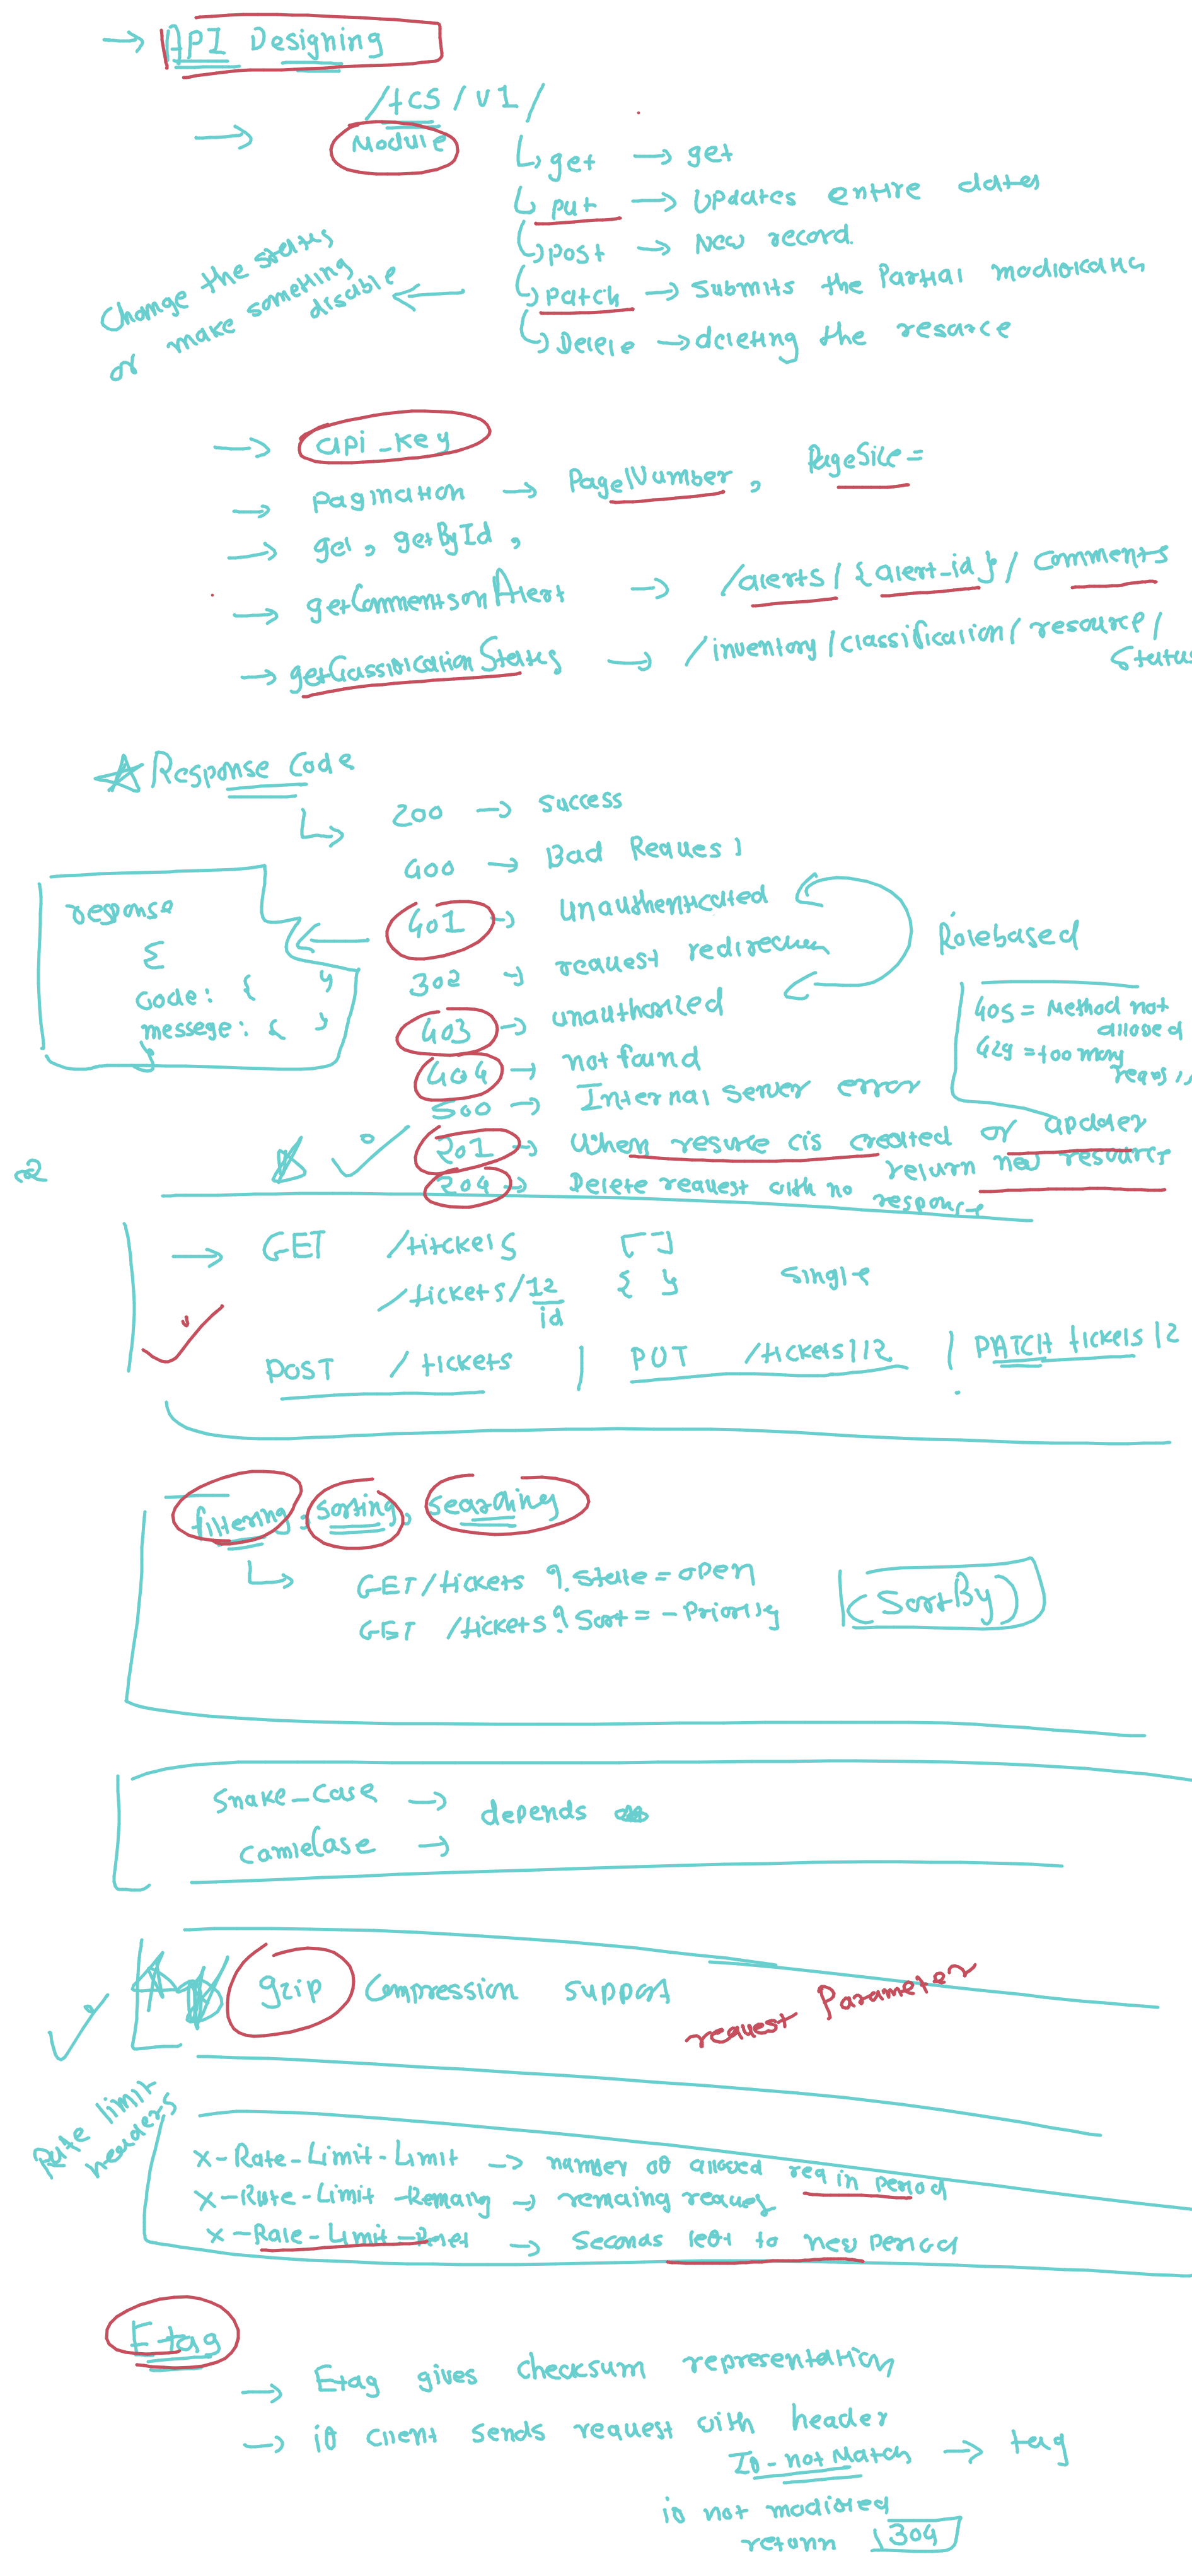 → API Designing
/tcs/v1/
→ Module
get → get
put → Updates entire dates
post → New record.
patch → Submits the Partial modidicatiis
Delele → deleting the resarce
Change the states
or make something
disable
→ api_key
→ Pagination → PageNumber, PageSize=
→ get, getById,
→ getCommentsonAlert → /alerts/{alert_id}/comments
→ getCassidication States → /inventory/classification/resource/
Status
Response Code
200 → Success
400 → Bad Request
401 → Unauthenticated
302 → request redirection
403 → unauthorized
404 → not found
500 → Internal Server error
201 → When resurce cis created or apdater
return new resource
204 → Delete request with no
response
response
{
Code: { }
messege: { }
Rolebased
405 = Method not
allowed
429 = too many
→ GET /titckets [ ]
/tickets/12 { } Single
id
POST /tickets | PUT /tickets/12 | PATCH tickets/2
filtering, sorting, searching
GET/tickets ?.State=open
GET /tickets?Sort=-Priority
(SortBy)
Snake_Case →
depends
camelCase →
gzip Compression support
request Parameter
Rate limit
headers
X-Rate-Limit-Limit → number od allowed req in period
X-Rate-Limit-Remaing → remaing reques
X-Rate-Limit-Reset → Seconds left to new period
Etag
→ Etag gives checksum representation
→ id client sends request with header
Id-not Match → tag
id not modidied
return 304